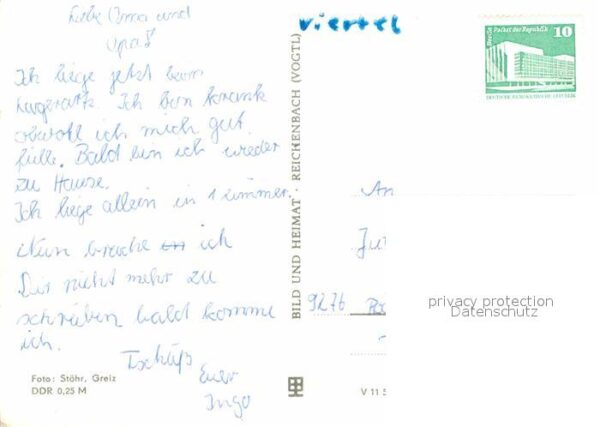 Liebe Oma und
Opa!
Ich liege jetzt beim
Lagerarzt. Ich bin krank
obwohl ich mich gut
fülle. Bald bin ich wieder
zu Hause.
Ich liege allein in 1 zimmer.
Nun brauche ich
Dir nicht mehr zu
schreiben bald komme
ich.
Tschüß
Euer
Ingo
Foto: Stöhr, Greiz
DDR 0,25 M
BILD UND HEIMAT REICHENBACH (VOGTL)
viertel
Berlin Palast der Republik
10
DEUTSCHE DEMOKRATISCHE REPUBLIK
An
9276
V 11 5
privacy protection
Datenschutz